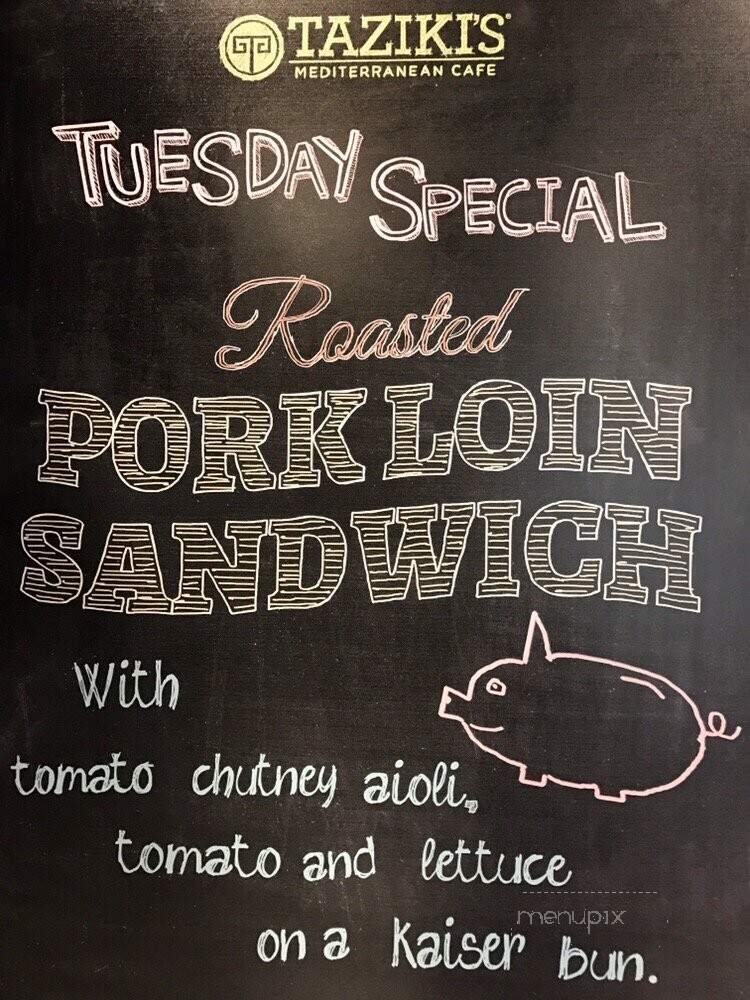 TAZIKI'S®
MEDITERRANEAN CAFE
TUESDAY SPECIAL
Roasted
PORK LOIN
SANDWICH
With
tomato chutney aioli,
tomato and lettuce
on a kaiser bun.
menupix